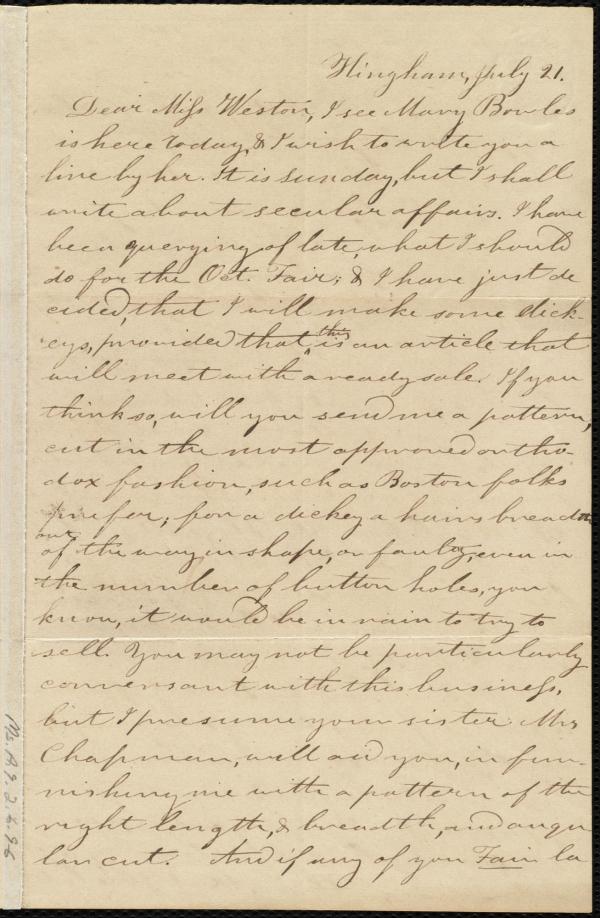 Hingham, July 21.
Dear Miss Weston, I see Mary Bowles
is here today, & I wish to write you a
line by her. It is sunday, but I shall
write about secular affairs. I have
been querying of late, what I should
do for the Oct. Fair; & I have just de
cided, that I will make some dick-
eys, provided that this is an article that
will meet with a ready sale. If you
think so, will you send me a pattern,
cut in the most approved ortho-
dox fashion, such as Boston folks
prefer; for a dickey a hairs breadth
out
of the way, in shape, or faulty, even in
the number of button holes, you
know, it would be in vain to try to
sell. You may not be particularly
conversant with this business,
but I presume your sister Mrs
Chapman, will aid you, in fur-
nishing me with a pattern of the
right length, & breadth, and angu
lar cut. And if any of you Fair la
Ms. A.9.2.4.96